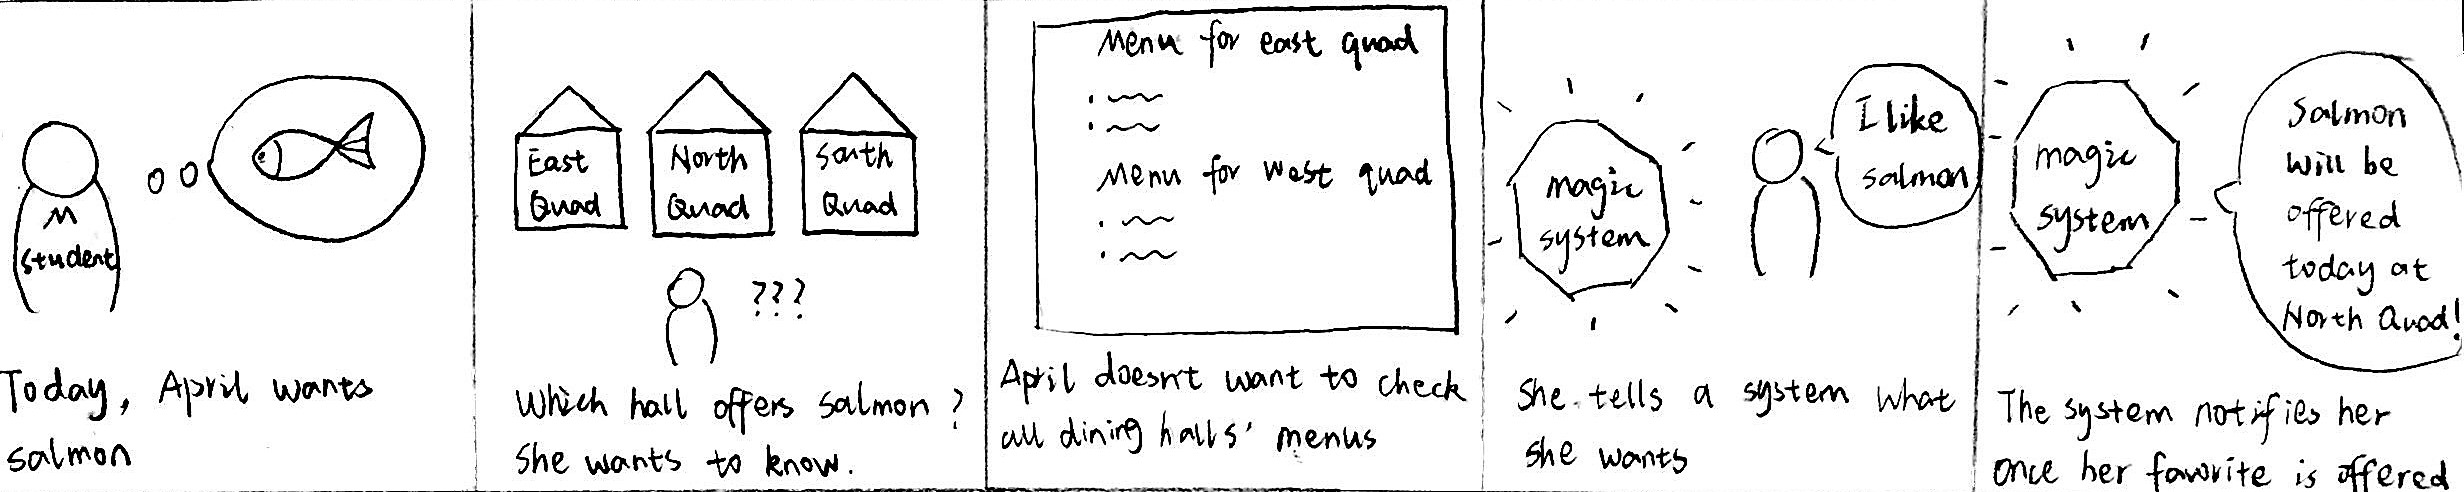 M
student
Today, April wants
salmon
East
Quad
North
Quad
South
Quad
???
Which hall offers salmon?
She wants to know.
Menu for east quad
Menu for west quad
April doesn't want to check
all dining halls' menus
magic
system
I like
salmon
She tells a system what
she wants
magic
system
Salmon
will be
offered
today at
North Quad!
The system notifies her
once her favorite is offered